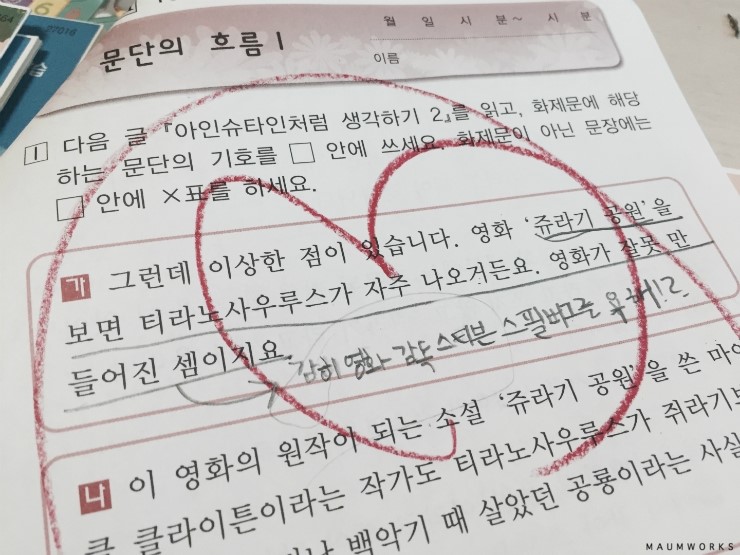 27016
문단의 흐름 1
월 일 시 분~ 시 분
이름
1 다음 글 『아인슈타인처럼 생각하기 2』를 읽고, 화제문에 해당
하는 문단의 기호를 □ 안에 쓰세요. 화제문이 아닌 문장에는
□ 안에 ×표를 하세요.
가 그런데 이상한 점이 있습니다. 영화 ‘쥬라기 공원’을
보면 티라노사우루스가 자주 나오거든요. 영화가 잘못 만
들어진 셈이지요.
감히 영화 감독 스티븐 스필버그를
나 이 영화의 원작이 되는 소설 ‘쥬라기 공원’을 쓴 마이
클 클라이튼이라는 작가도 티라노사우루스가 쥐라기
백악기 때 살았던 공룡이라는 사실
MAUMWORKS